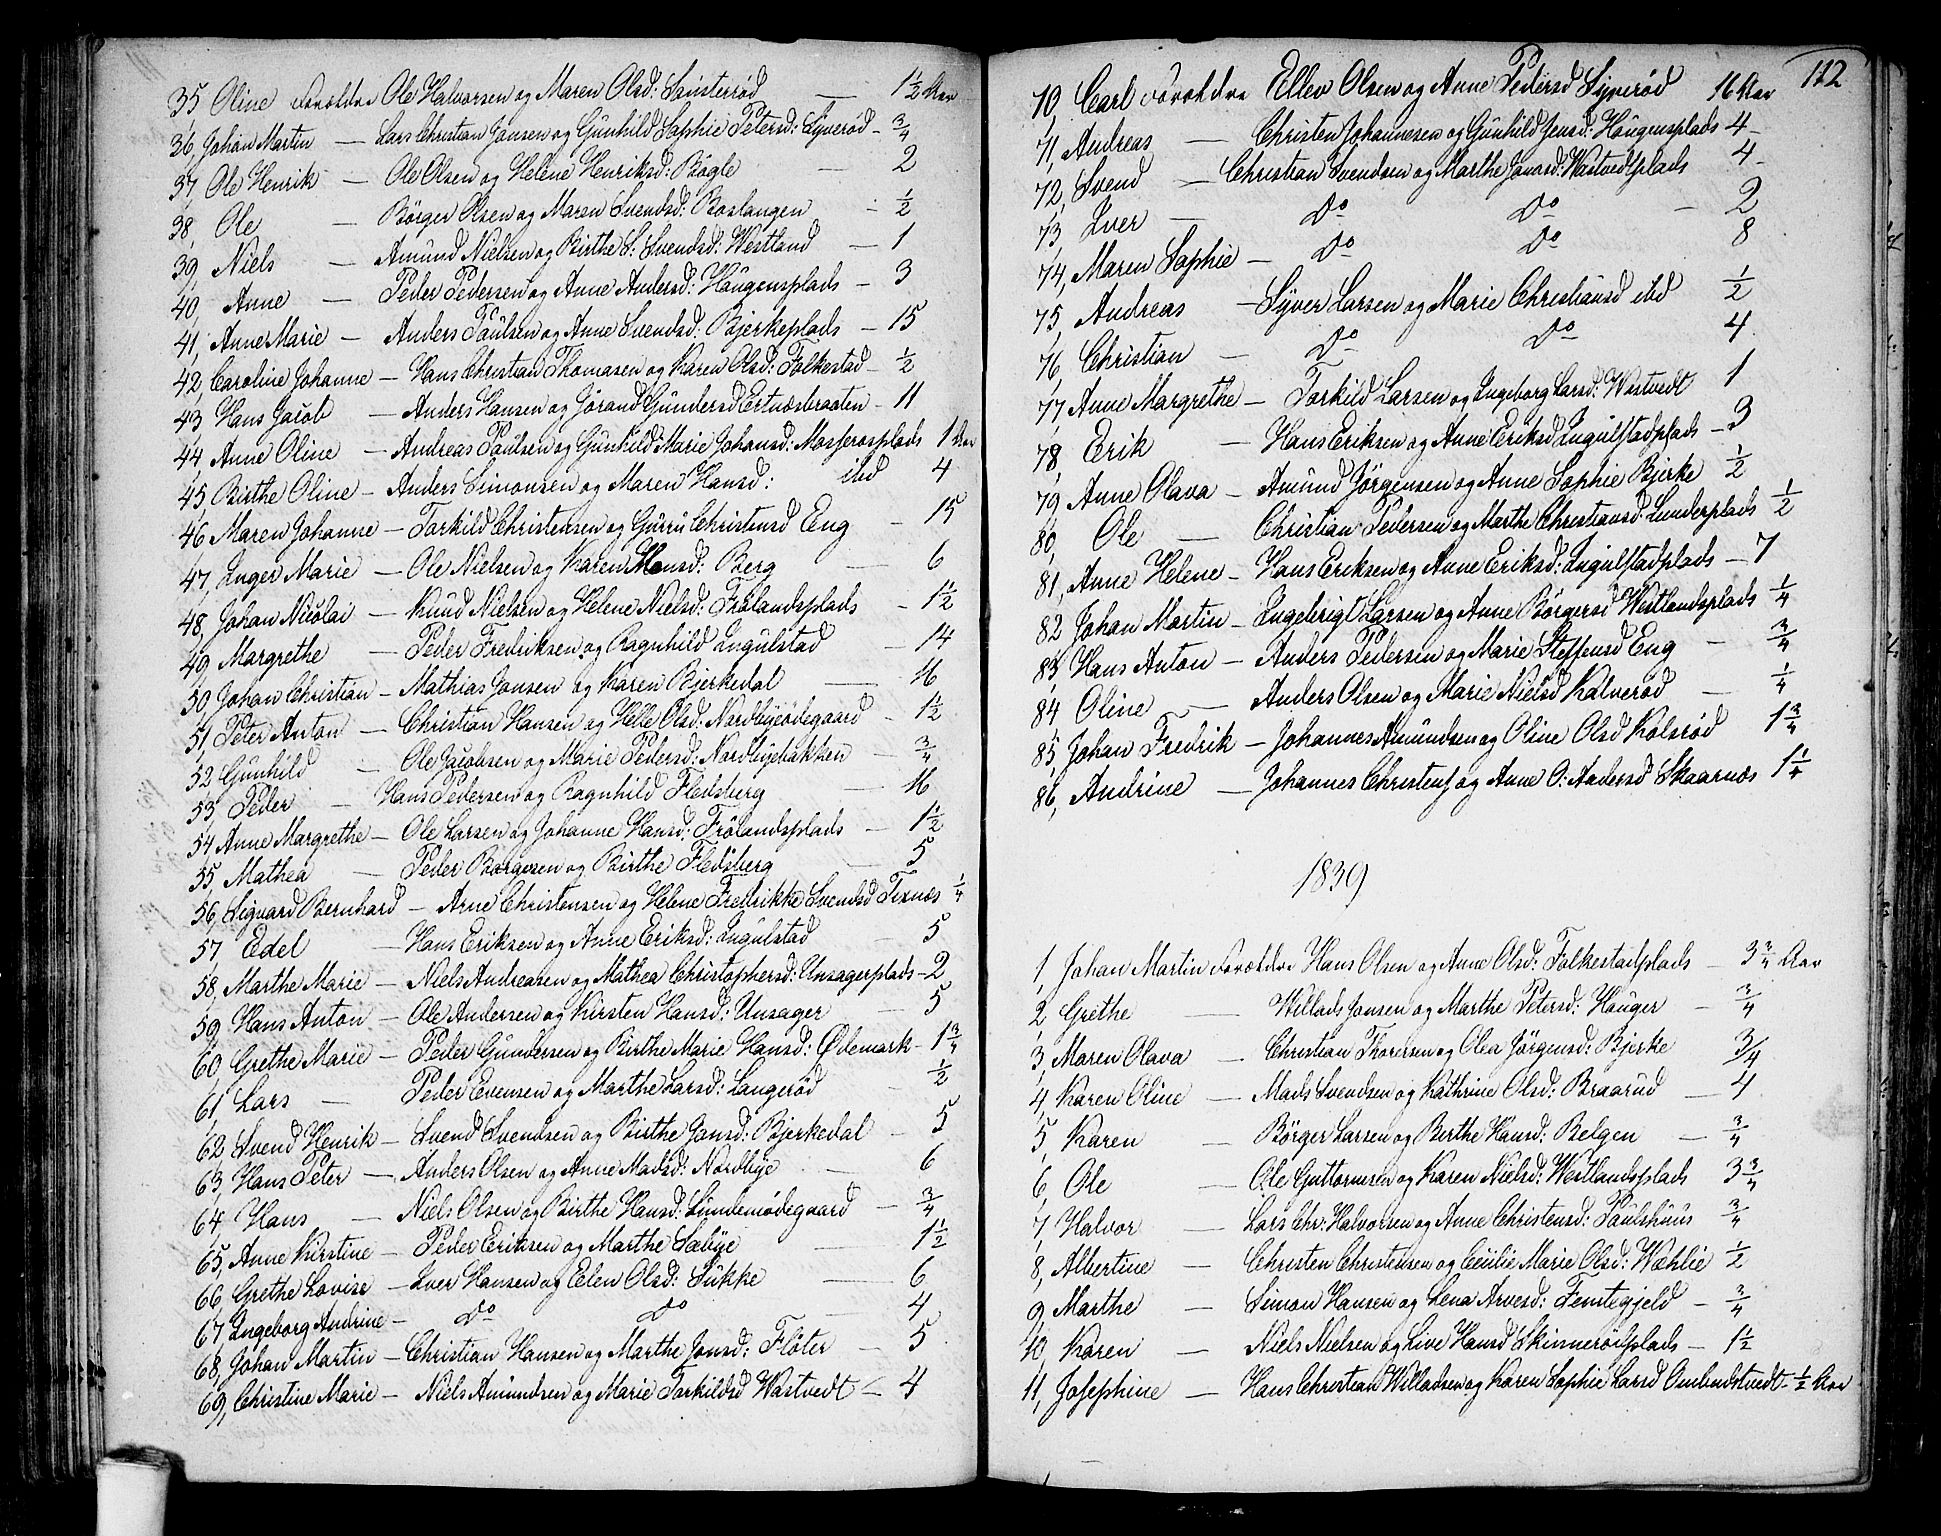 35 Oline Forældre Ole Halvorsen og Maren Olsd: Sønsterød — 1½ Aar
36, Johan Martin — Lars Christian Jansen og Gunhild Sophie Petersd: Syverød — ¾
37, Ole Henrik — Ole Olsen og Helene Henriksd: Bøgle — 2
38, Ole — Börger Olsen og Maren Svendsd: Boslangen — ½
39, Niels — Amund Nielsen og Birthe S: Svendsd: Westland — 1
40, Anne — Peder Pedersen og Anne Andersd: Haugensplads — 3
41, Anne Marie — Anders Paulsen og Anne Svendsd: Bjerkeplads — 15
42, Caroline Johanne — Hans Christian Thomasen og Karen Olsd: Folkestad — ½
43, Hans Jacob — Anders Hansen og Jörand Gundersd Ertnæsbraaten — 11
44, Anne Oline — Andreas Paulsen og Gunhild Marie Johansd: Mosserosplads 1 Aar
45, Birthe Oline — Anders Simonsen og Maren Hansd: ibd 4
46 Maren Johanne — Torkild Christensen og Gurru Christensd Eng — 15
47, Inger Marie — Ole Nielsen og Karen Hansd: Berg — 6
48, Johan Nicolai — Knud Nielsen og Helene Nielsd: Frölandsplads — 1½
49, Margrethe — Peder Fredriksen og Ragnhild Ingulstad — 14
50, Johan Christian — Mathias Jansen og Karen Bjerkedal — 16
51, Peter Anton — Christian Hansen og Helle Olsd: Nordbyeödegaard — 1½
52 Gunhild — Ole Jacobsen og Marie Pedersd: Nordbyebakken — ¾
53, Peder — Hans Pedersen og Ragnhild Fledsberg — 16
54, Anne Margrethe — Ole Larsen og Johanne Hansd: Frölandsplads — 1½
55, Mathea — Peder Borgersen og Birthe Fledsberg — 5
56, Siguard Bernhard — Arne Christensen og Helene Fredrikke Svendsd Texnæs ¼
57, Edel — Hans Eriksen og Anne Eriksd: Ingulstad — 5
58, Marthe Marie — Niels Andreasen og Mathea Christophersd: Unsagerplads — 2
59, Hans Anton — Ole Andersen og Kirsten Hansd: Unsager — 5
60 Grethe Marie — Peder Gundersen og Birthe Marie Hansd: Ødemark — 1¾
61, Lars — Peder Evensen og Marthe Larsd: Langerød ½
62 Svend Henrik — Svend Svendsen og Birthe Jansd: Bjerkedal — 5
63, Hans Peter — Anders Olsen og Anne Madsd: Nordbye — 6
64, Hans — Niels Olsen og Birthe Hansd: Sundemödegaard — ¾
65, Anne Kirstine — Peder Eriksen og Marthe Sæbye — 1½
66, Grethe Lovise — Iver Hansen og Eelen Olsd: Sukke — 6
67, Ingeborg Andrine — do do 4
68, Johan Martin — Christian Hansen og Marthe Jonsd: Flöter — 5
69, Christine Marie — Niels Amundsen og Marie Torkildsd Wæstvedt — 4
112
70, Carl Forældre Ellev Olsen og Anne Pedersd Syverød 16 Aar
71, Andreas — Christen Johannesen og Gunhild Jensd: Haugensplads 4
72, Svend — Christian Svendsen og Marthe Jonasd: Wæstvedtplads 4
73, Iver — do do — 2
74, Maren Sophie — do do 8
75, Andreas — Syver Larsen og Marie Christiansd ibd ½
76, Christian — do do 4
77, Anne Margrethe — Torkild Larsen og Ingeborg Larsd: Wæstvedt 1
78, Erik — Hans Eriksen og Anne Eriksd Ingulstadplads — 3
79, Anne Olava — Amund Jörgensen og Anne Sophie Bjerke ½
80, Ole — Christian Pedersen og Marthe Christiansd: Lunderplads ½
81, Anne Helene — Hans Eriksen og Anne Eriksd: Ingulstadplads — 7
82 Johan Martin — Ingebrigt Larsen og Anne Börgersd Westlandsplads ¼
83, Hans Anton — Anders Pedersen og Marie Steffensd Eng — ¾
84, Oline — Anders Olsen og Marie Nielsd Kalverød — ¼
85, Johan Fredrik — Johannes Amundsen og Oline Olsd Kolsrød 1¾
86, Andrine — Johannes Christens og Anne O: Andersd Skaarnæs 1¼
1839
1, Johan Martin Forældre Hans Olsen og Anne Olsd: Folkestadplads — 3¾ Aar
2 Grethe — Willads Jonsen og Marthe Petersd: Hauger — ¾
3, Maren Olava — Christian Thoresen og Olea Jörgensd: Bjerke ¾
4, Karen Oline — Mads Svendsen og Kathrine Olsd: Braarud — 4
5, Karen — Börger Larsen og Berthe Hansd: Belgen — ¾
6, Ole — Ole Guttormsen og Karen Nielsd: Westlandsplads 3¾
7, Halvor — Lars Chr: Halvorsen og Anne Christensd: Paulshuus ¾
8, Albertine — Christen Christensen og Cecilie Marie Olsd: Wæhlie ½
9, Marthe — Simon Hansen og Lena Arvesd: Femtegjeld — ¾
10, Karen — Niels Nielsen og Live Hansd Skinneröilplads — 1½
11, Josephine — Hans Christian Willadsen og Karen Sophie Larsd Ombudstvedt — ½ Aar